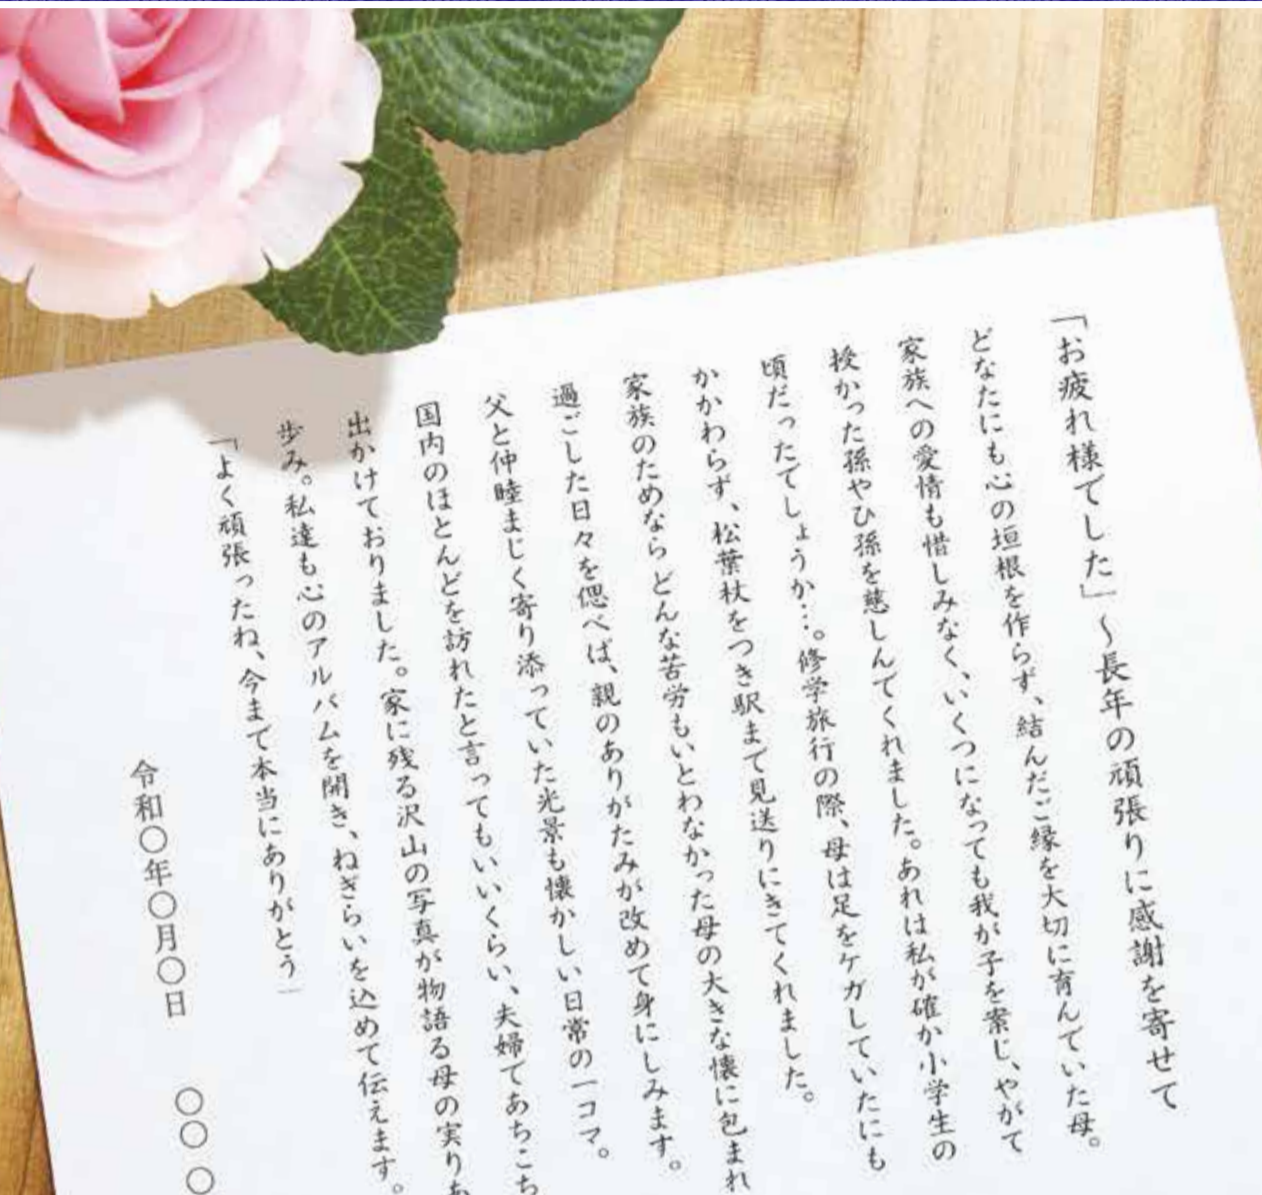 「お疲れ様でした」～長年の頑張りに感謝を寄せて
どなたにも心の垣根を作らず、結んだご縁を大切に育んでいた母。
家族への愛情も惜しみなく、いくつになっても我が子を案じ、やがて
授かった孫やひ孫を慈しんでくれました。あれは私が確か小学生の
頃だったでしょうか…。修学旅行の際、母は足をケガしていたにも
かかわらず、松葉杖をつき駅まで見送りにきてくれました。
家族のためなら どんな苦労もいとわなかった母の大きな懐に包まれ
過ごした日々を偲べば、親のありがたみが改めて身にしみます。
父と仲睦まじく寄り添っていた光景も懐かしい日常の一コマ。
国内のほとんどを訪れたと言ってもいいくらい、夫婦であちこち
出かけておりました。家に残る沢山の写真が物語る母の実り
歩み。私達も心のアルバムを開き、ねぎらいを込めて伝えます。
「よく頑張ったね、今まで本当にありがとう」
令和〇年〇月〇日 〇〇 〇